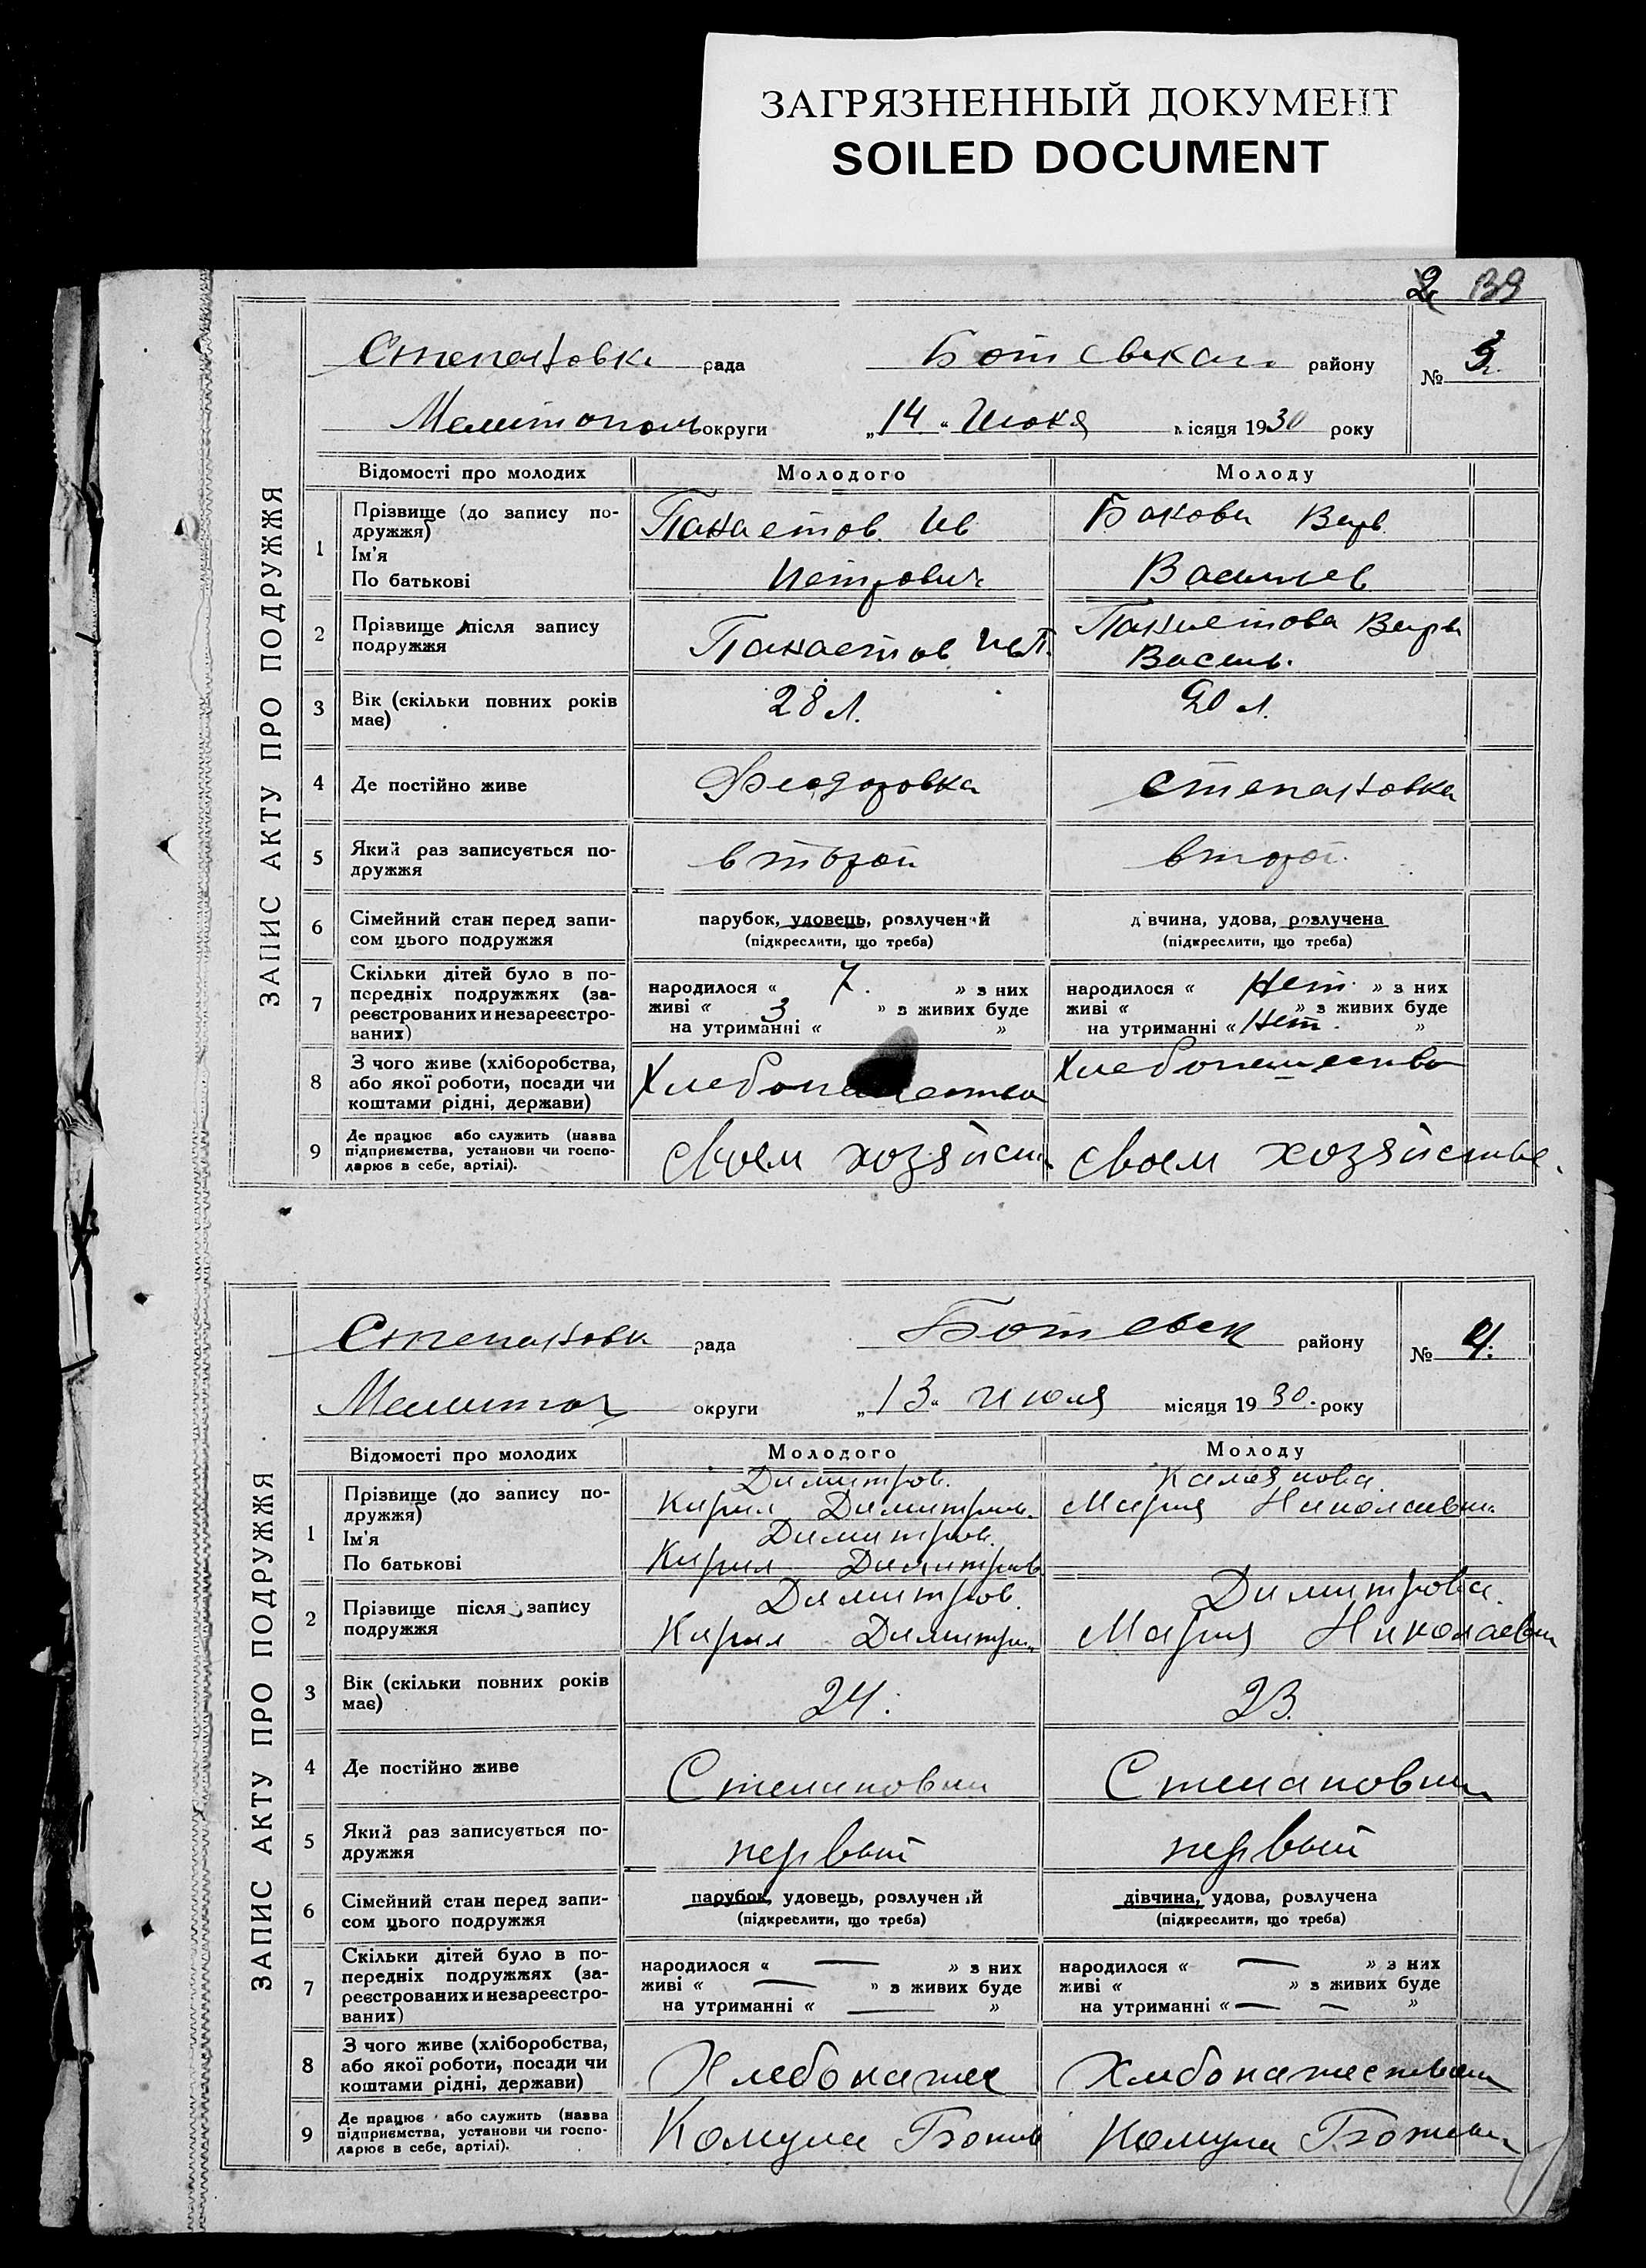 ЗАГРЯЗНЕННЫЙ ДОКУМЕНТ
SOILED DOCUMENT
2 139
ЗАПИС АКТУ ПРО ПОДРУЖЖЯ
Степановка рада Ботевскаго району № 3
Мелитополь округи „14“ Июня місяця 1930 року
Відомості про молодих Молодого Молоду
1 Прізвище (до запису по-
дружжя)
Ім'я
По батькові
Панаетов Ив
Петрович
Бакова Варв
Васильев
2 Прізвище після запису
подружжя
Панаетов Ив П.
Панаетова Варв
Василь.
3 Вік (скільки повних років
має)
28 л.
20 л.
4 Де постійно живе Феодоровка Степановка
5 Який раз записується по-
дружжя
второй
второй
6 Сімейний стан перед запи-
сом цього подружжя
парубок, удовець, розлучений
(підкреслити, що треба)
дівчина, удова, розлучена
(підкреслити, що треба)
7 Скільки дітей було в по-
передніх подружжях (за-
реєстрованих и незареєстро-
ваних)
народилося « 7. » з них
живі « 3 » з живих буде
на утриманні « »
народилося « Нет » з них
живі « » з живих буде
на утриманні « Нет. »
8 З чого живе (хліборобства,
або якої роботи, посади чи
коштами рідні, держави)
Хлебопашество
Хлебопашество
9 Де працює або служить (назва
підприємства, установи чи госпо-
дарює в себе, артілі).
своем хозяйств
своем хозяйстве.
ЗАПИС АКТУ ПРО ПОДРУЖЖЯ
Степановка рада Ботевск району № 4.
Мелитоп округи „13“ июля місяця 1930. року
Відомості про молодих Молодого Молоду
1 Прізвище (до запису по-
дружжя)
Ім'я
По батькові
Димитров.
Кирил Димитров.
Димитров.
Кирил Димитров
Калоянова
Мария Николаевна
2 Прізвище після запису
подружжя
Димитров.
Кирил Димитри
Димитрова.
Мария Николаевна
3 Вік (скільки повних років
має)
24.
23.
4 Де постійно живе Степановки Степановки
5 Який раз записується по-
дружжя
первый
первый
6 Сімейний стан перед запи-
сом цього подружжя
парубок, удовець, розлучений
(підкреслити, що треба)
дівчина, удова, розлучена
(підкреслити, що треба)
7 Скільки дітей було в по-
передніх подружжях (за-
реєстрованих и незареєстро-
ваних)
народилося « — » з них
живі « — » з живих буде
на утриманні « — »
народилося « — » з них
живі « » з живих буде
на утриманні « — — »
8 З чого живе (хліборобства,
або якої роботи, посади чи
коштами рідні, держави)
Хлебопашес
Хлебопашествам
9 Де працює або служить (назва
підприємства, установи чи госпо-
дарює в себе, артілі).
Комуна Ботев
Комуна Ботева